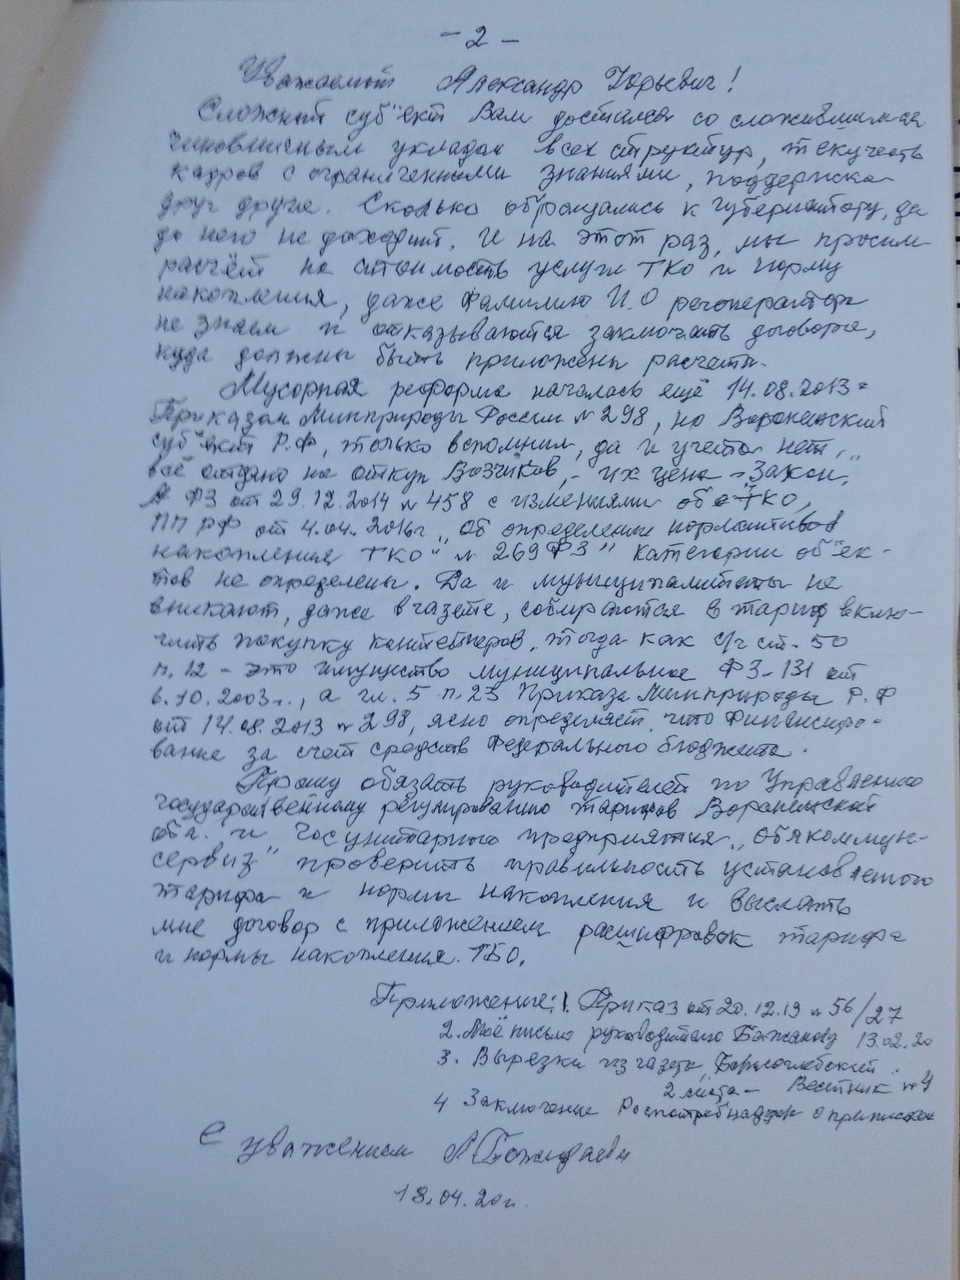 - 2 -
Уважаемый Александр Юрьевич!
Сложный суб"ект Вам достался со сложившимся
чиновничьим укладом всех структур, текучесть
кадров с ограниченными знаниями, поддержка
друг друга. Сколько обращались к губернатору, да
до него не доходит. И на этот раз, мы просим
расчёт на стоимость услуги ТКО и норму
накопления, даже Фамилию И.О регоператора
не знаем и отказываются заключать договора,
куда должны быть приложены расчеты.
Мусорная реформа началась ещё 14.08.2013г
Приказом Минприроды России №298, но Воронежский
суб"ект Р.Ф, только вспомнил, да и учета нет,
всё отдано на откуп Возчиков, - их цена - Закон.
А ФЗ от 29.12.2014 №458 с изменениями об ТКО,
ПП РФ от 4.04.2016г „Об определении нормативов
накопления ТКО" №269 ФЗ" категории об"ек-
тов не определены. Да и муниципалитеты не
вникают, даже в газете, собираются в тариф вклю-
чить покупку контейнеров, тогда как с/г ст. 50
п. 12 - это имущество муниципальное ФЗ-131 от
6.10.2003г., а гл. 5 п. 23 Приказа Минприроды Р.Ф
от 14.08.2013 №298, ясно определяет, что Финансиро-
вание за счет средств Федерального бюджета.
Прошу обязать руководителей по Управлению
государственному регулированию тарифов Воронежской
обл. и Госунитарного предприятия „Облкоммун-
сервиз" проверить правильность установленного
тарифа и нормы накопления и выслать
мне договор с приложением расшифровок тарифа
и нормы накопления ТБО.
Приложение: 1. Приказ от 20.12.19 №56/27
2. Моё письмо руководителю Бажанову 13.02.20
3. Вырезки из газеты „Борисоглебский
2 листа - Вестник №4
4 Заключение Роспотребнадзора о приписках
С уважением
18.04.20г.